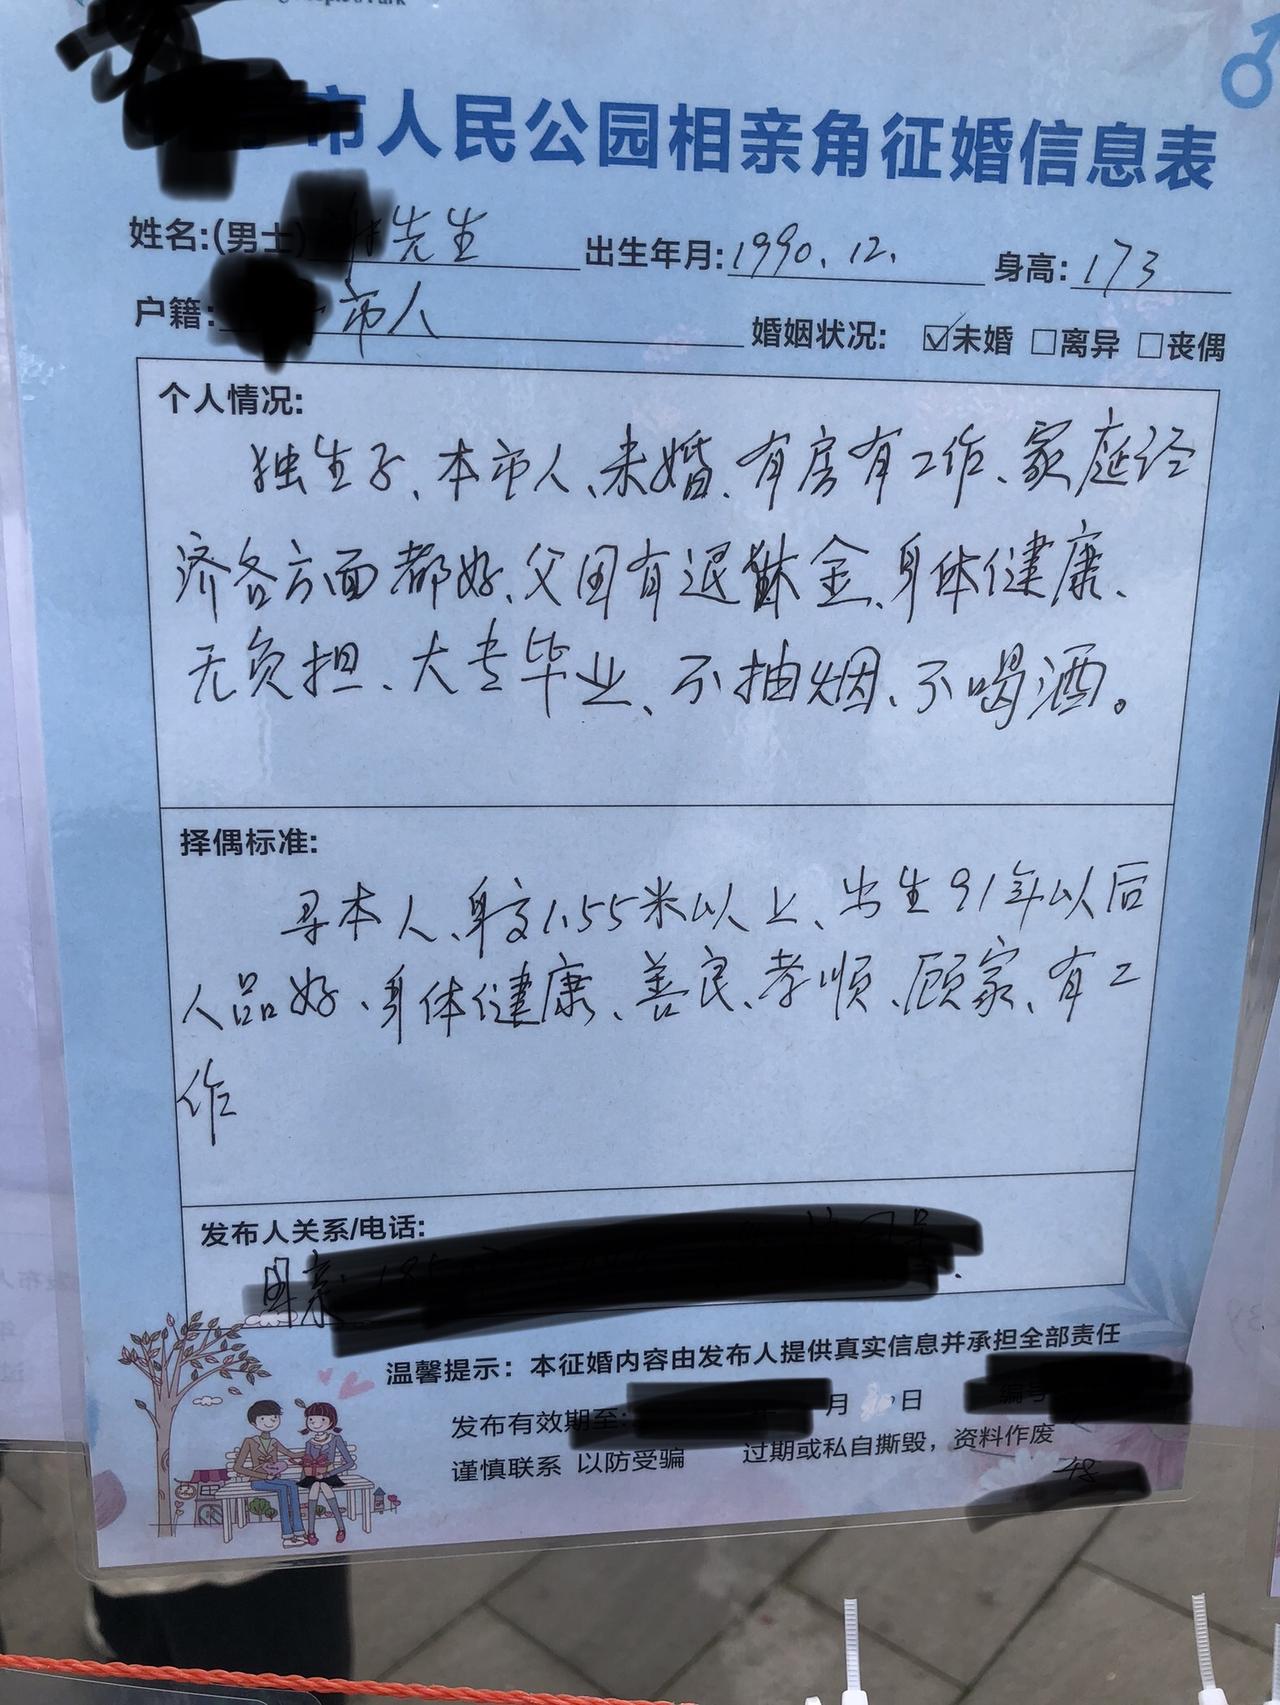 市人民公园相亲角征婚信息表
姓名:(男士) 先生 出生年月:1990.12. 身高:173
户籍: 市人 婚姻状况: ☑未婚 □离异 □丧偶
个人情况:
独生子、本市人、未婚、有房有工作、家庭经
济各方面都好、父母有退休金、身体健康、
无负担、大专毕业、不抽烟、不喝酒。
择偶标准:
寻本人、身高1.55米以上、出生91年以后
人品好、身体健康、善良、孝顺、顾家、有工
作
发布人关系/电话:
母亲:
温馨提示:本征婚内容由发布人提供真实信息并承担全部责任
发布有效期至: 月 日 编号
谨慎联系 以防受骗 过期或私自撕毁,资料作废